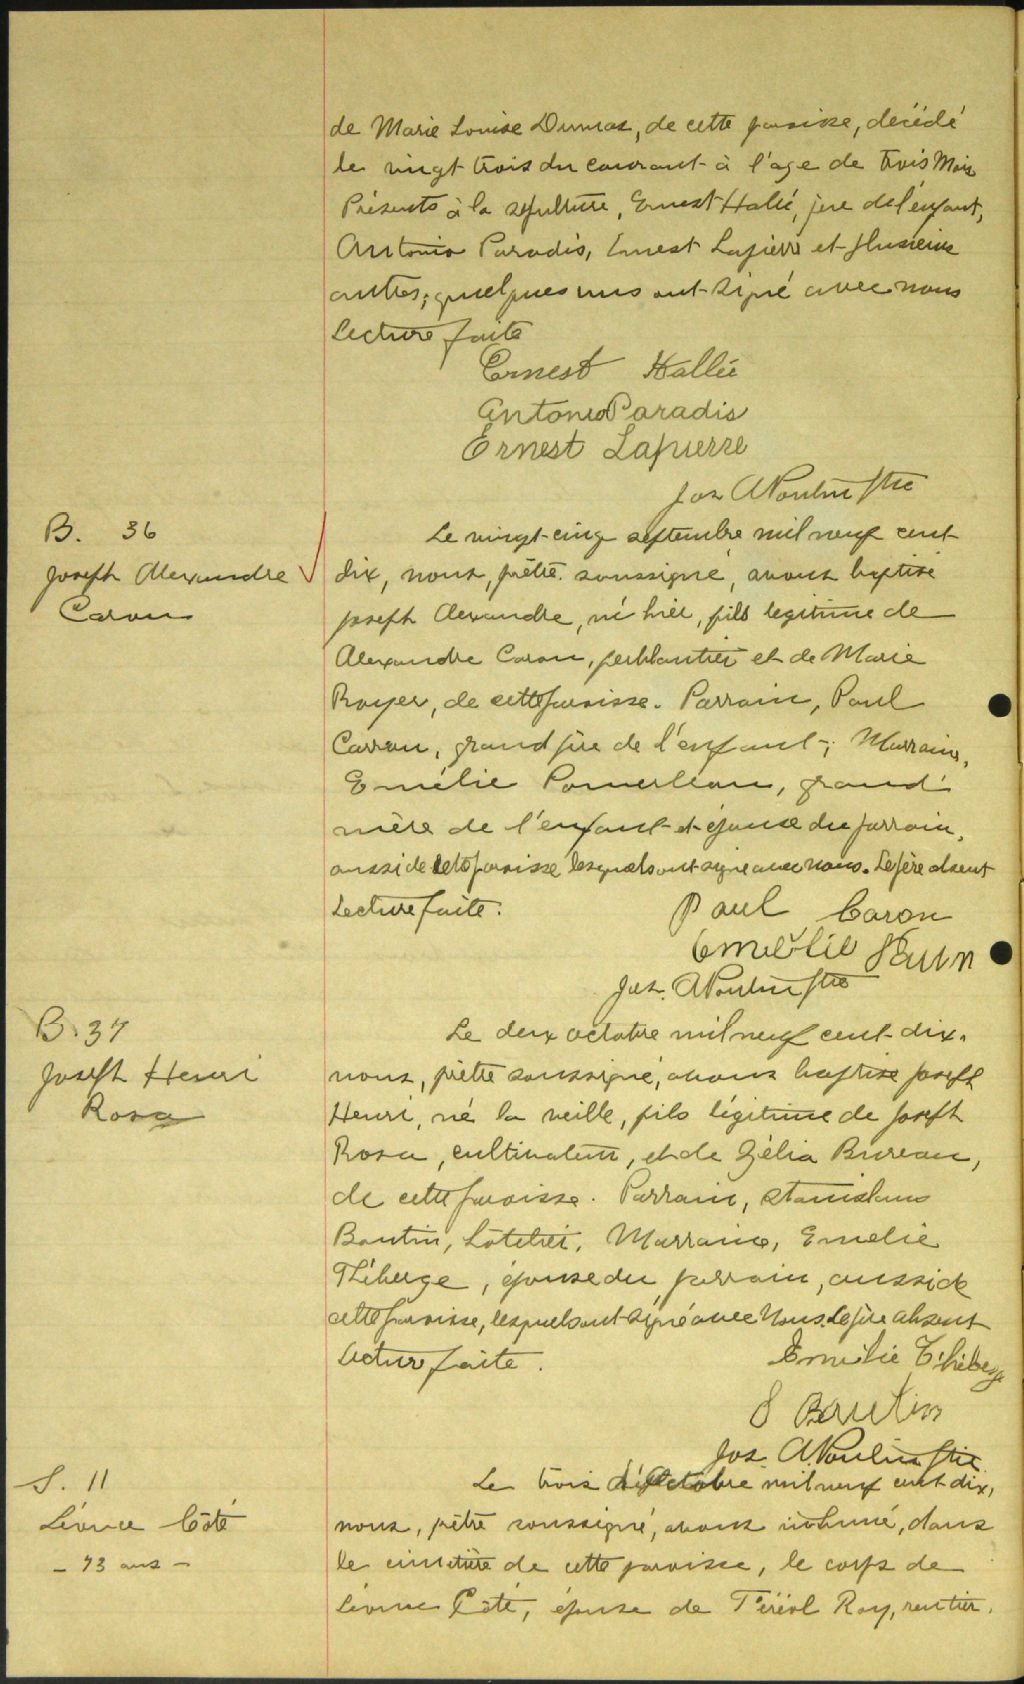 de Marie Louise Dumas, de cette paroisse, décédé
le vingt trois du courant à l'age de trois Mois
Présents à la sépulture, Ernest Hallé, père de l'enfant,
Antonio Paradis, Ernest Lapierre et plusieurs
autres; quelques uns ont signé avec nous
Lecture faite
Ernest Hallée
Antonio Paradis
Ernest Lapierre
Jos A Poulin ptre
B. 36
Joseph Alexandre
Caron
Le vingt-cinq septembre mil neuf cent
dix, nous, prêtre soussigné, avons baptisé
Joseph Alexandre, né hier, fils legitime de
Alexandre Caron, ferblantier et de Marie
Royer, de cette paroisse. Parrain, Paul
Carron, grand père de l'enfant; Marraine,
Emélie Pomerleau, grand'
mère de l'enfant et épouse du parrain,
aussi de cette paroisse lesquels ont signé avec nous. Le père absent
Lecture faite.
Paul Caron
Emélie
Jos. A Poulin ptre
B. 37
Joseph Henri
Rosa
Le deux octobre mil neuf cent dix,
nous, prêtre soussigné, avons baptisé Joseph
Henri, né la veille, fils légitime de Joseph
Rosa, cultivateur, et de Zélia Bureau,
de cette paroisse. Parrain, Stanislaus
Boutin, hôtelier, Marraine, Emelie
Théberge, épouse du parrain, aussi de
cette paroisse, lesquels ont signé avec Nous. Le père absent
Lecture faite.
Emélie Théberge
S Boutin
Jos A. Poulin ptre
S. 11
Léonce Côté
- 73 ans -
Le trois d'Octobre mil neuf cent dix,
nous, prêtre soussigné, avons inhumé, dans
le cimetière de cette paroisse, le corps de
Léonce Côté, épouse de Roy, rentier,